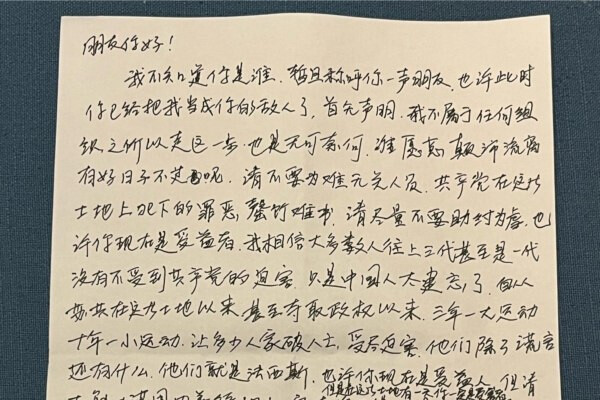 朋友你好！
我不知道你是谁，暂且称呼你一声朋友，也许此时
你已给把我当成你的敌人了，首先声明，我不属于任何组
织，之所以走这一步，也是无可奈何，谁愿意颠沛流离
有好日子不过呢，请不要为难无关人员，共产党在这片
土地上犯下的罪恶，罄竹难书，请尽量不要助纣为虐，也
许你现在是受益者，我相信大多数人往上三代甚至是一代
没有不受到共产党的迫害，只是中国人太健忘了，自从
苏共在这片土地以来，甚至夺取政权以来，三年一大运动
十年一小运动，让多少人家破人亡，受尽迫害，他们除了谎言
还有什么，他们就是法西斯，也许你现在是受益人，但请